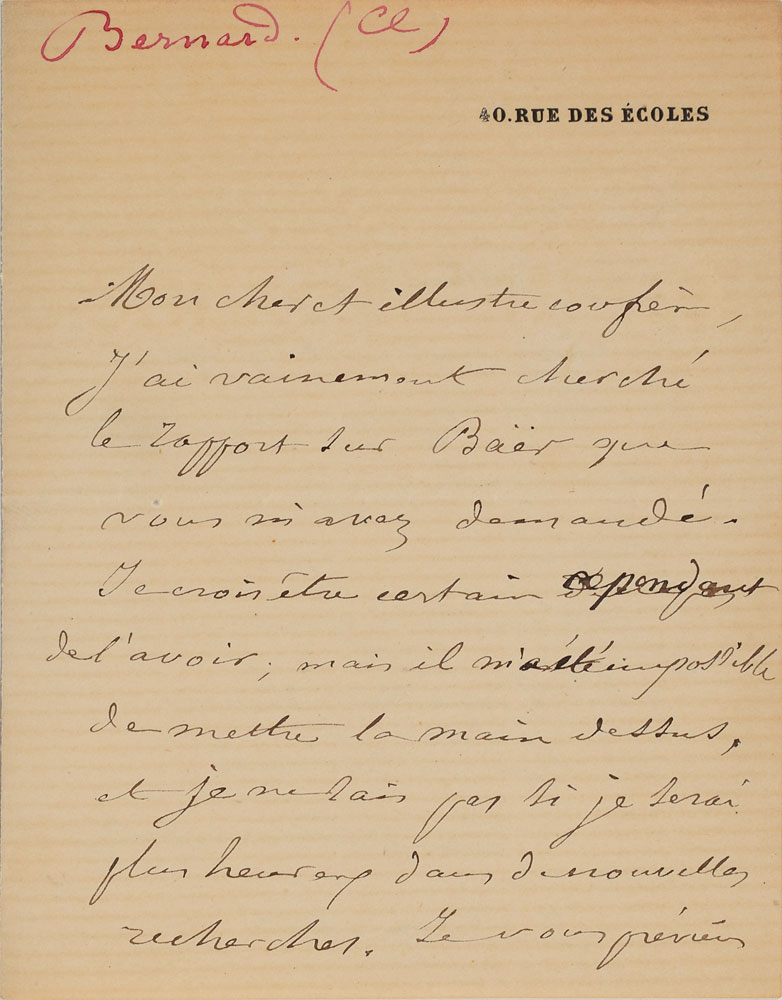 Bernard. (Cl)
40. RUE DES ÉCOLES
Mon cher et illustre confrère,
J'ai vainement cherché
le rapport sur Baër que
vous m'avez demandé.
Je crois être certain cependant
de l'avoir; mais il m'a été impossible
de mettre la main dessus,
et je ne sais pas si je serai
plus heureux dans de nouvelles
recherches. Je vous préviens